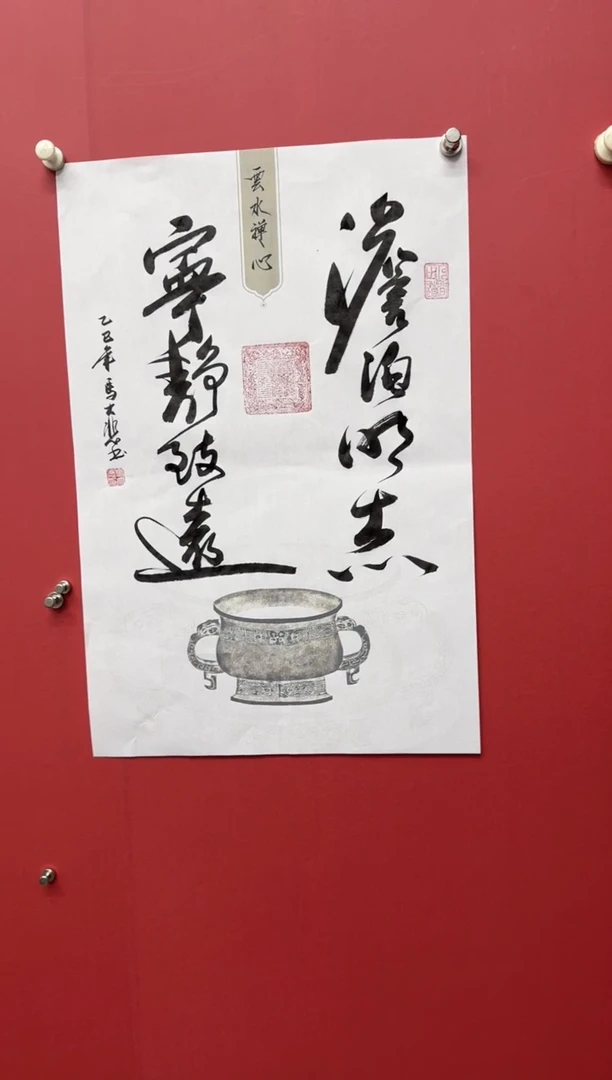 澹泊明志
雲水禪心
寧靜致遠
乙巳年馬大悲書